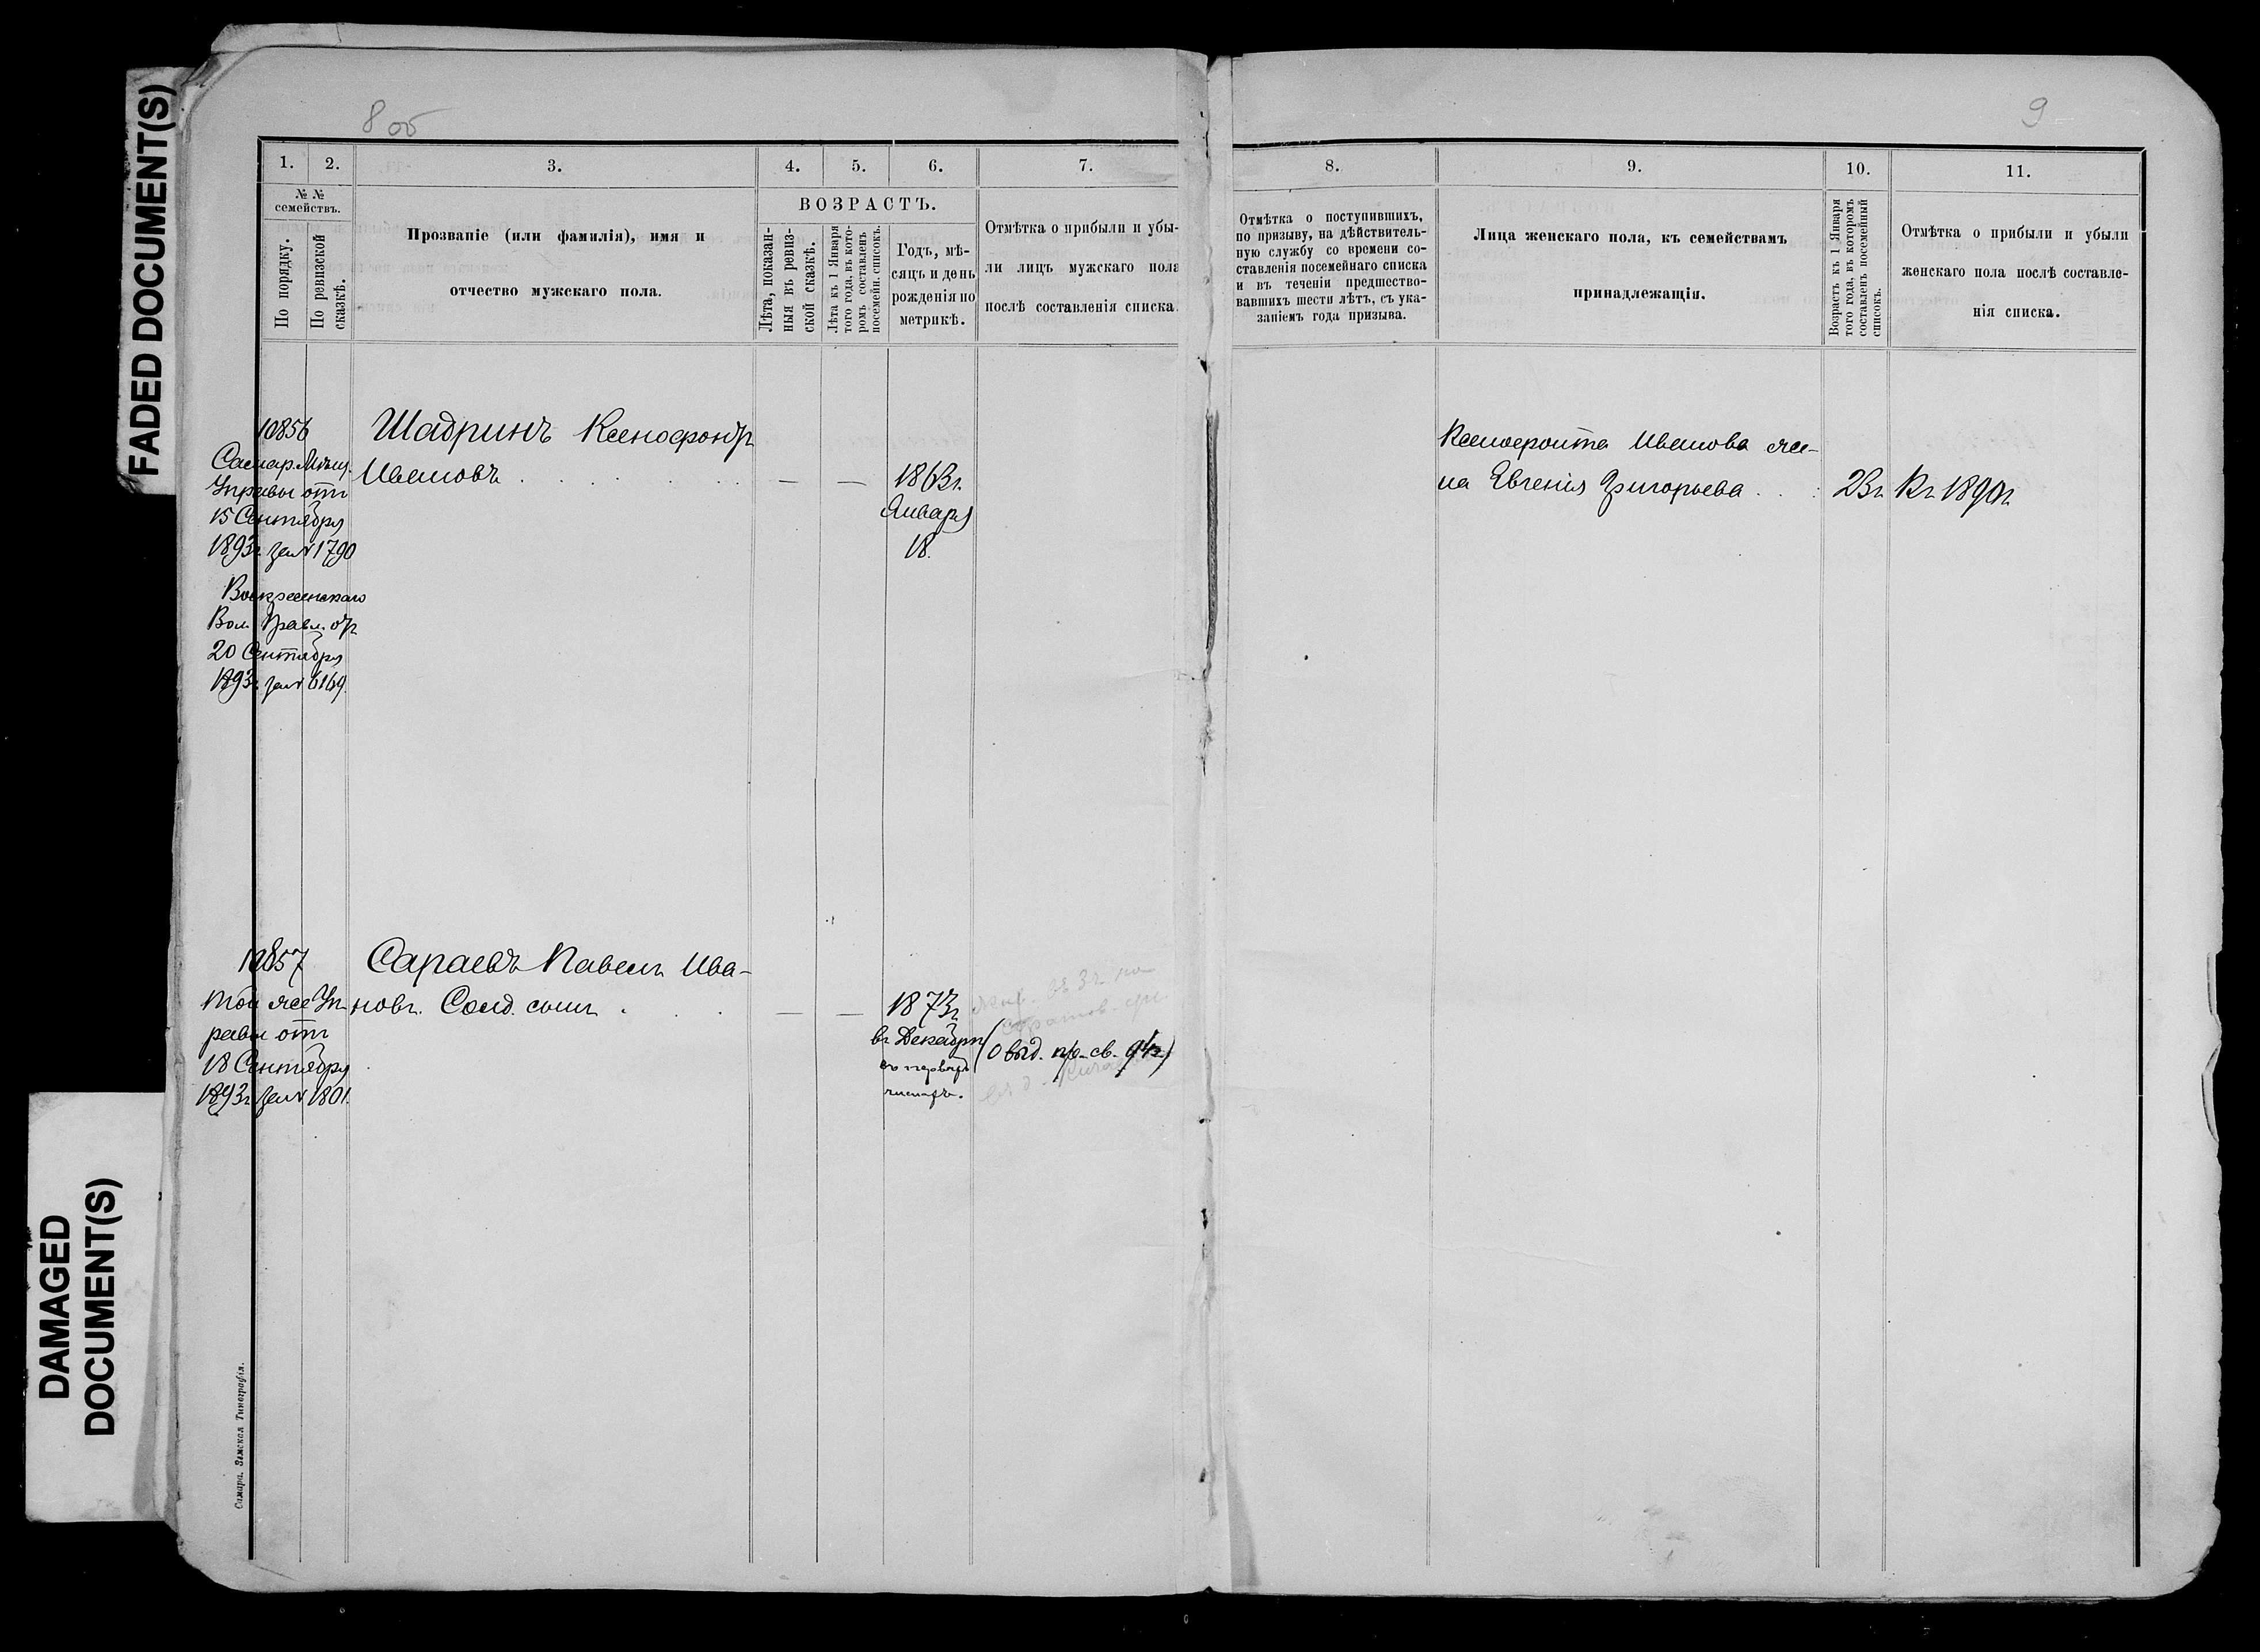 FADED DOCUMENT(S)
DAMAGED
DOCUMENT(S)
8 об
9
1.
2.
3.
4.
5.
6.
7.
8.
9.
10.
11.
№ №
семействъ.
По порядку.
По ревизской
сказкѣ.
Прозваніе (или фамилія), имя и
отчество мужскаго пола.
ВОЗРАСТЪ.
Лѣта, показан-
ныя въ ревиз-
ской сказкѣ.
Лѣта къ 1 Января
того года, въ кото-
ромъ составленъ
посемейн. списокъ.
Годъ, мѣ-
сяцъ и день
рожденія по
метрикѣ.
Отмѣтка о прибыли и убы-
ли лицъ мужскаго пола
послѣ составленія списка.
Отмѣтка о поступившихъ,
по призыву, на дѣйствитель-
ную службу со времени со-
ставленія посемейнаго списка
и въ теченіи предшество-
вавшихъ шести лѣтъ, съ ука-
заніемъ года призыва.
Лица женскаго пола, къ семействамъ
принадлежащія.
Возрастъ къ 1 Января
того года, въ которомъ
составленъ посемейный
списокъ.
Отмѣтка о прибыли и убыли
женскаго пола послѣ составле-
нія списка.
10856
Самар. Мѣщ.
Управы отъ
15 Сентября
1893г. за № 1790
Воскресенскаго
Вол. Правл. отъ
20 Сентября
1893г. за № 6169.
Шадринъ Ксенофонтъ
Ивановъ
— —
1863г.
Января
18.
Ксенофонта Иванова же-
на Евгенія Григорьева
23г.
Къ 1890г.
10857
той же Уп-
равы отъ
18 Сентября
1893г. за № 1801.
Сараевъ Павелъ Ива-
новъ. Солд. сынъ
— —
1873г.
въ Декабрѣ
въ первыхъ
числахъ.
(О выд. пр. св. 94г.)
Самара. Земская Типографія.